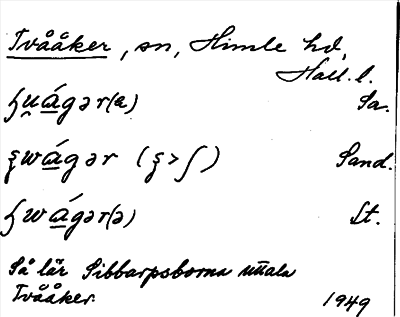 Tvååker, sn, Himle hd,
Hall. l.
ɧu̯ágər(ə) Sa.
ʂwágər (ʂ>ʃ) Sand.
ɧwágər(ə) Lt.
Så lär Sibbarpsborna uttala
Tvååker.
1949